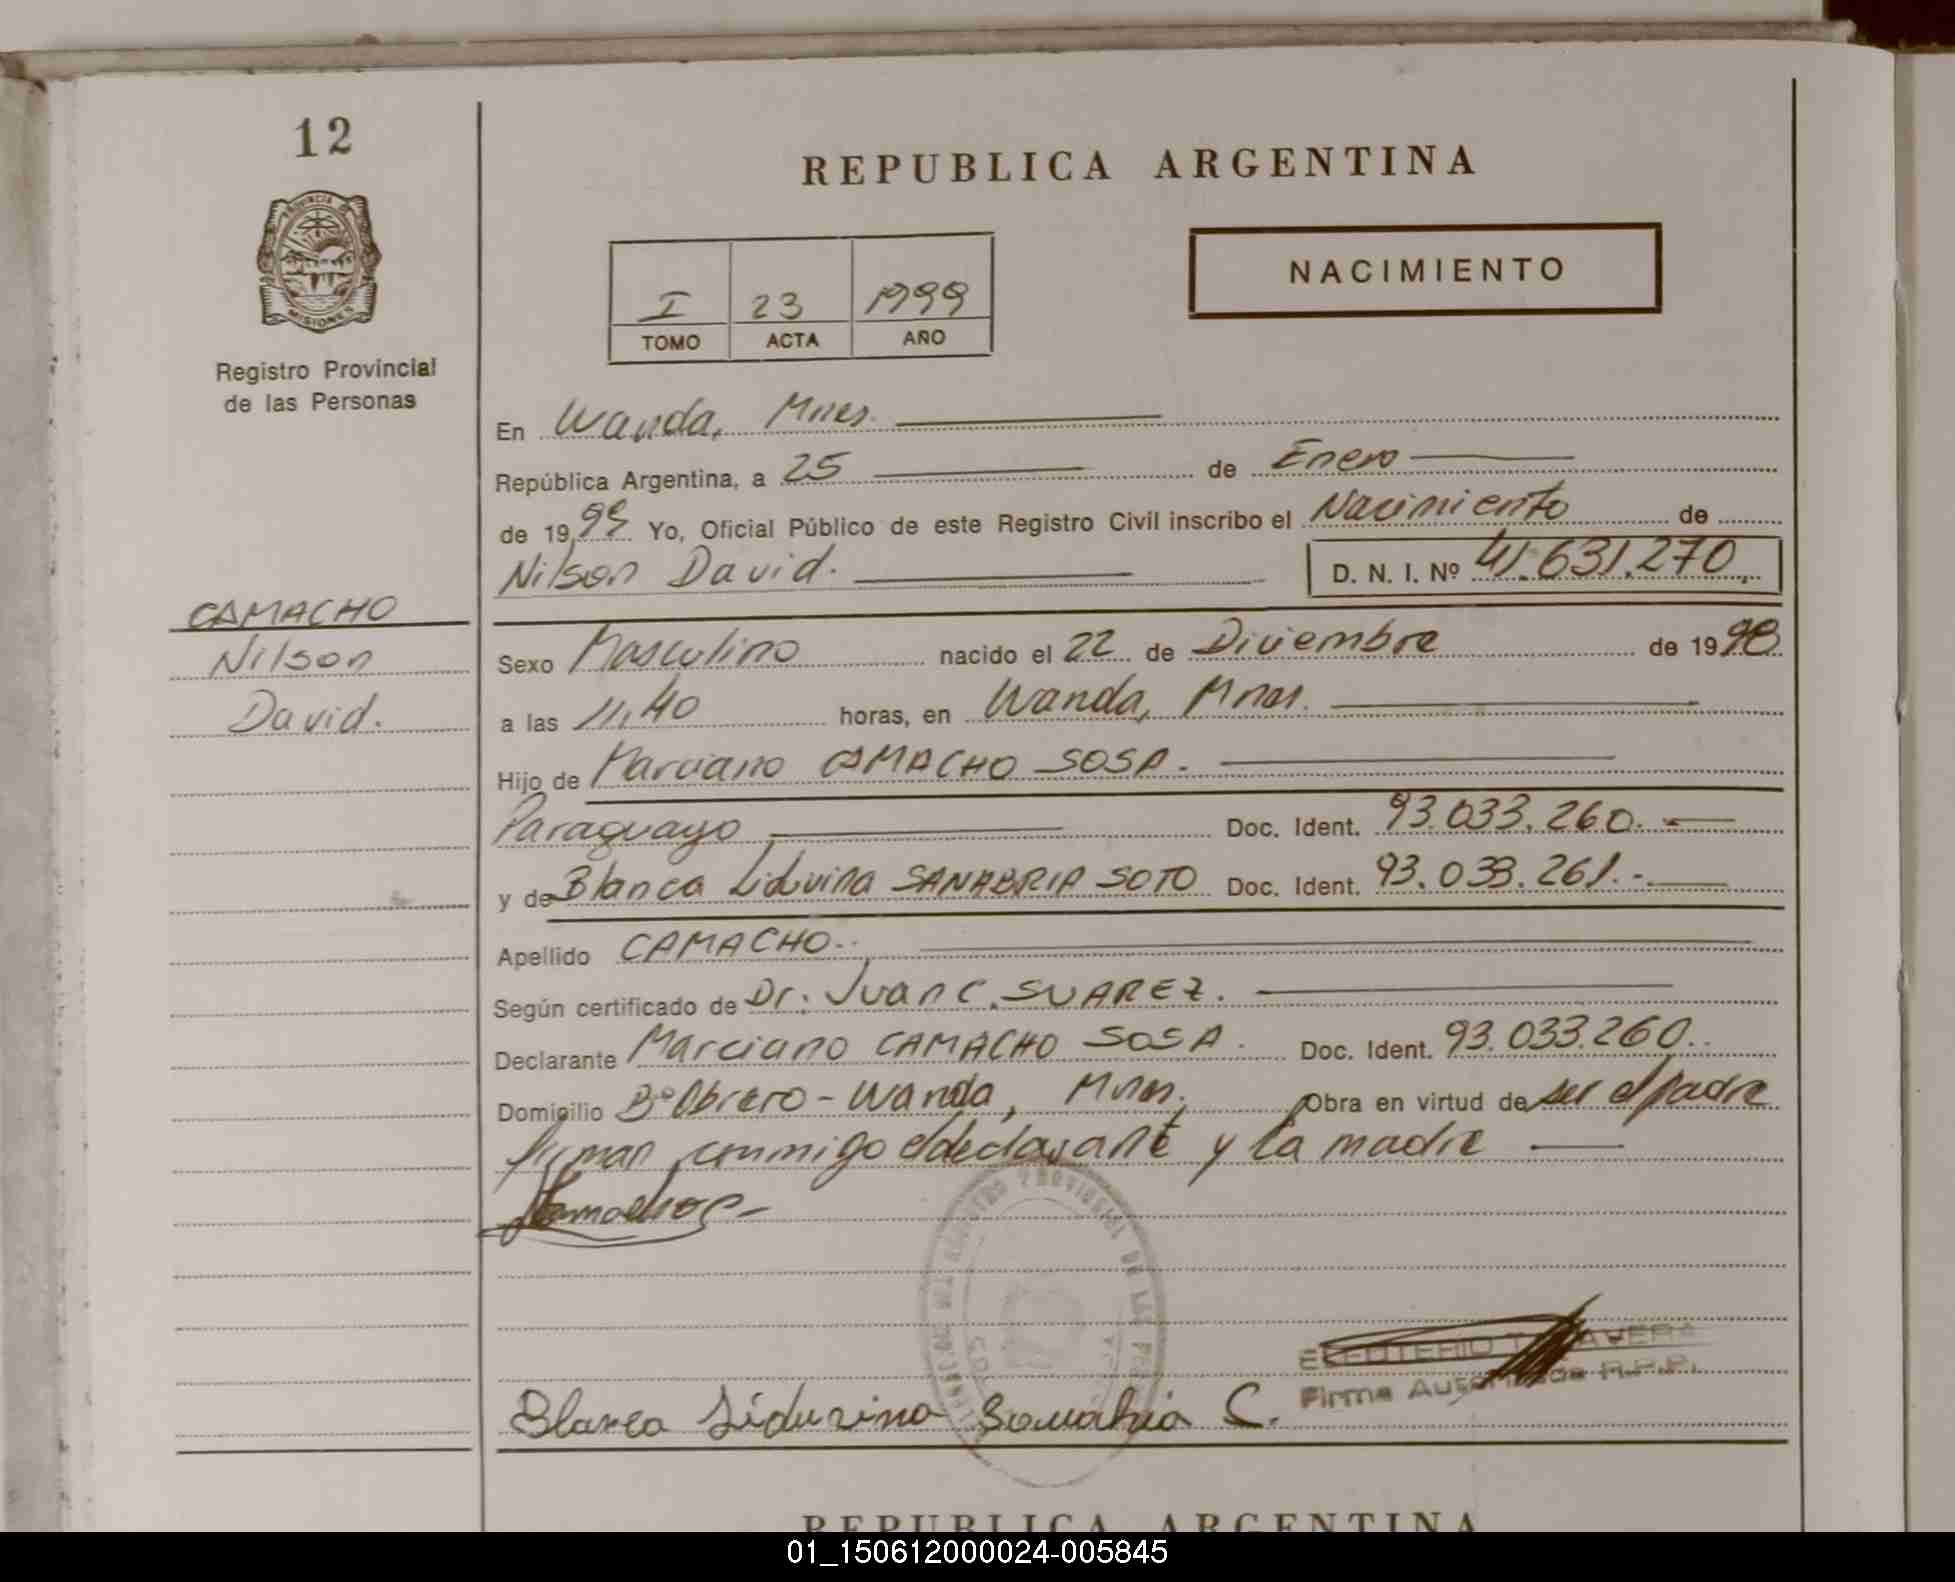 12
REPUBLICA ARGENTINA
PROVINCIA DE
MISIONES
Registro Provincial
de las Personas
NACIMIENTO
I 23 1999
TOMO ACTA AÑO
En Wanda, Mnes.
República Argentina, a 25 de Enero
de 1999 Yo, Oficial Público de este Registro Civil inscribo el Nacimiento de
Nilson David. D. N. I. Nº 41.631.270
CAMACHO
Nilson
David.
Sexo Masculino nacido el 22 de Diciembre de 1998
a las 11,40 horas, en Wanda, Mnes.
Hijo de Marciano CAMACHO SOSA.
Paraguayo Doc. Ident. 93.033.260.
y de Blanca Liduvina SANABRIA SOTO Doc. Ident. 93.033.261.
Apellido CAMACHO.
Según certificado de Dr. Juan C. SUAREZ.
Declarante Marciano CAMACHO SOSA. Doc. Ident. 93.033.260.
Domicilio Bº Obrero - Wanda, Mnes. Obra en virtud de ser el padre
firman conmigo el declarante y la madre
REGISTRO PROVINCIAL DE LAS
Firma Autorizada R.P.P.
Blanca Liduvina Sanabria C.
REPUBLICA ARGENTINA
01_150612000024-005845